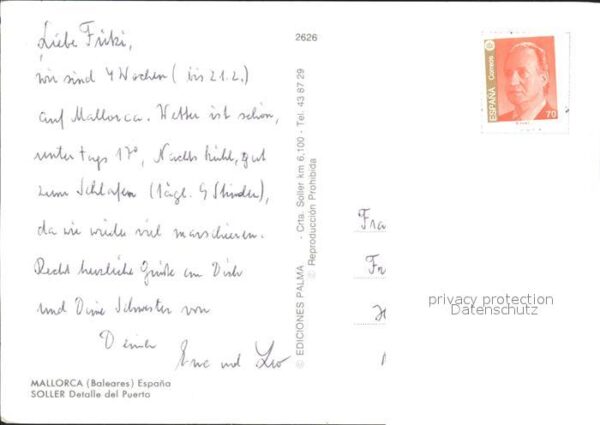 Liebe Fritzi,
wir sind 4 Wochen (bis 21.2.)
auf Mallorca. Wetter ist schön,
untertags 17°, Nachts kühl, gut
zum Schlafen (tägl. 9 Stunden),
da wir wieder viel marschieren.
Recht herzliche Grüße an Dich
und Deine Schwester von
Deinen
und Leo
MALLORCA (Baleares) España
SOLLER Detalle del Puerto
2626
© EDICIONES PALMA - Crta. Soller km 6,100 - Tel. 43 87 29
© Reproducción Prohibida
ESPAÑA Correos
70
Fra
privacy protection
Datenschutz